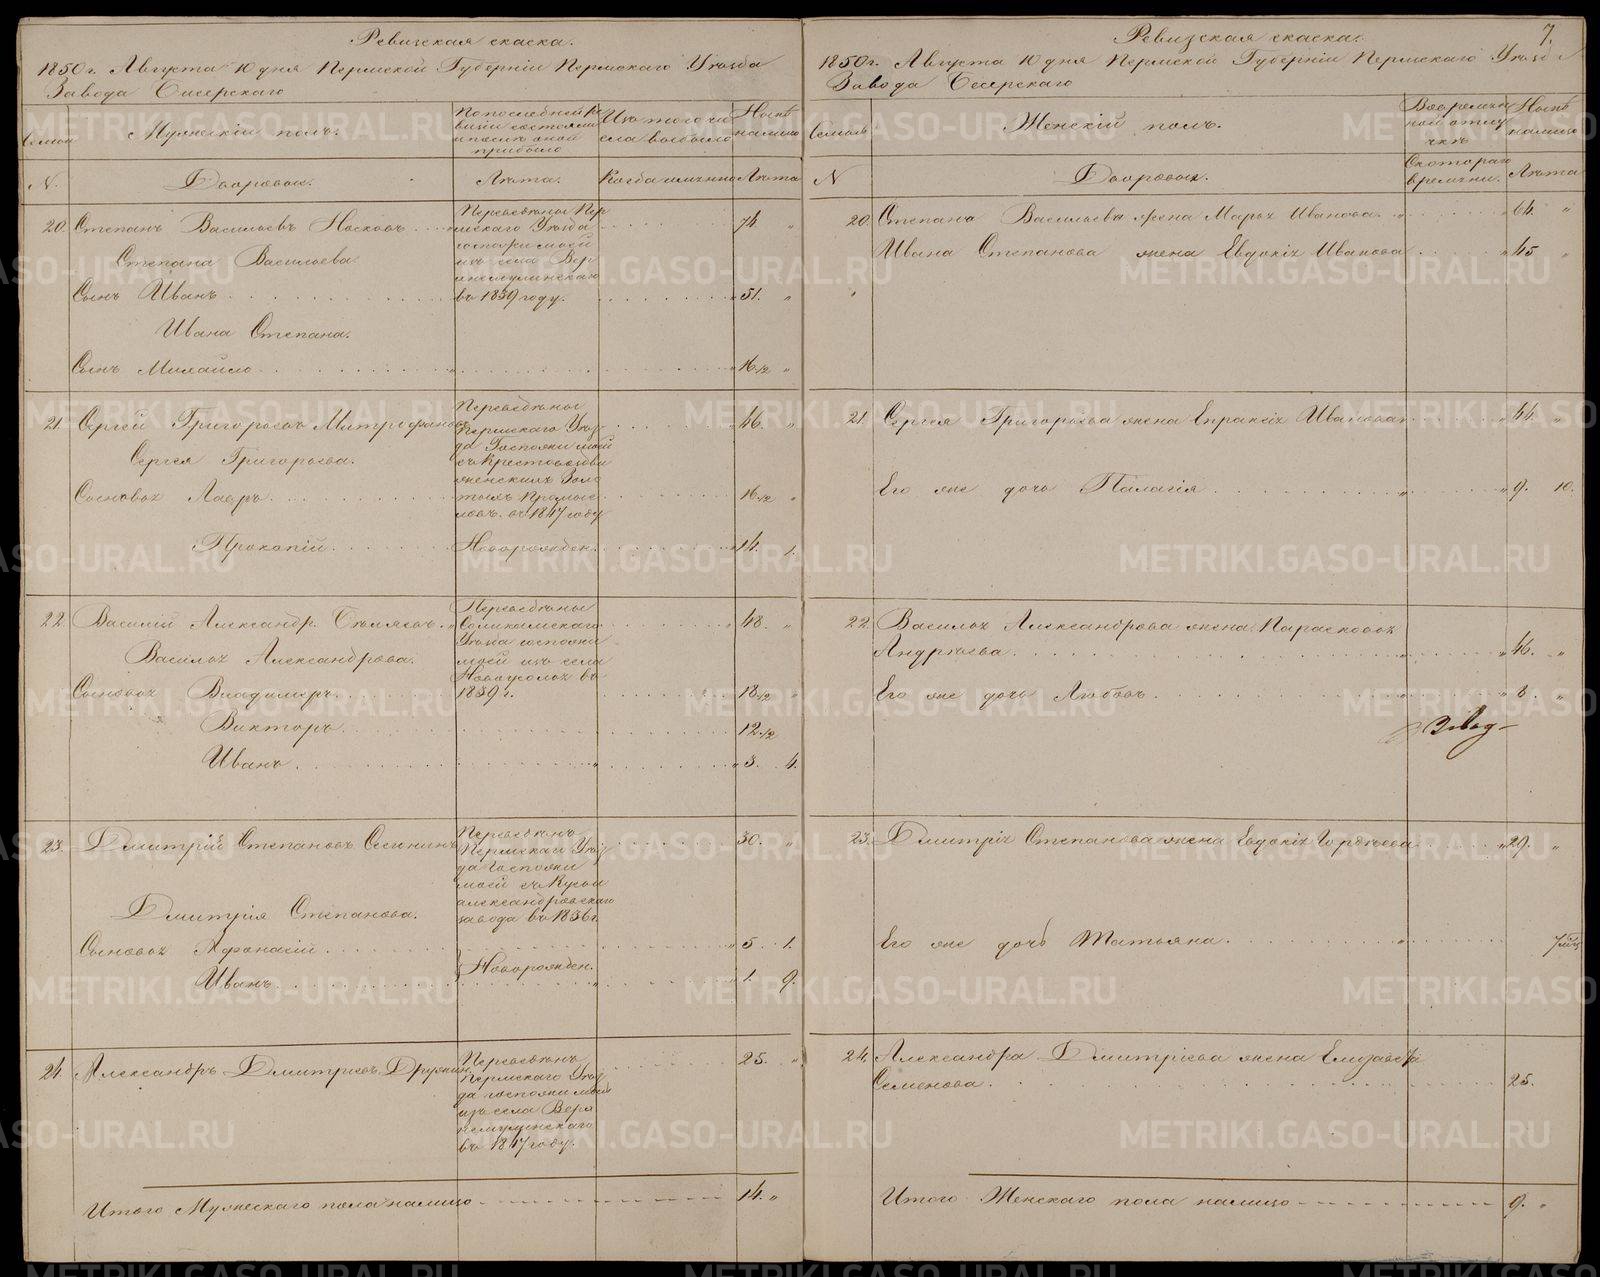 Ревизская сказка.
1850 г. Августа 10 дня Пермской Губернiи Пермскаго Уѣзда
Завода Бисерскаго
Мужескiй полъ.
По последней ре
визiи состояли
и послѣ оной
прибыло
Изъ того чи
сла выбыло
Нынѣ
налицо
Семьи
N.
Дворовые.
Лѣта.
Когда именно
Лѣта
20. Степанъ Васильевъ Носковъ 74. "
Переведены Пер
мскаго Уѣзда
госпожи моей
изъ села Вер
хнемулинскаго
въ 1839 году.
Степана Васильева
Сынъ Иванъ 51. "
Ивана Степана.
Сынъ Михайло 16 1/2 "
21. Сергей Григорьевъ Митрофановъ 46. "
Переведены
Пермскаго Уѣз
да Госпожи моей
съ Крестовоздви
женскихъ Золо
тыхъ Промыс
ловъ. въ 1847 году
Сергея Григорьева.
Сыновья Лавръ 16 1/2 "
Прокопiй Новорожден. 14. 1.
22. Василiй Александр. Бѣляевъ 48. "
Переведены
Соликамскаго
Уѣзда госпожи
моей изъ села
Новаусолья въ
1839 г.
Василья Александрова.
Сыновья Владимiръ 18 1/2 "
Викторъ 12 1/2
Иванъ " 3. 4.
23. Дмитрiй Степановъ Сесюнинъ 30. "
Переведенъ
Пермскаго Уѣз
да Госпожи
моей съ Кусье
александровскаго
завода въ 1836 г.
Дмитрiя Степанова.
Сыновья Афонасiй 5. 1.
Новорожден.
Иванъ 1. 9.
24. Александръ Дмитрiевъ Дружин. 25. "
Переведенъ
Пермскаго Уѣз
да госпожи моей
изъ села Верх
немулинскаго
въ 1847 году.
Итого Мужескаго пола налицо 14. "
7.
Ревизская сказка.
1850 г. Августа 10 дня Пермской Губернiи Пермскаго Уѣзда
Завода Бисерскаго
Семьи
Женскiй полъ.
Во времен
ной отлу
чкѣ
Нынѣ
налицо
N
Дворовые.
Съ котораго
времени.
Лѣта
20. Степана Васильева жена Марья Иванова 64. "
Ивана Степанова жена Евдокiя Иванова 45 "
21. Сергея Григорьева жена Епраксiя Иванова 44. "
Его же дочь Палагiя 9. 10.
22. Василья Александрова жена Парасковья
Андрѣева 46. "
Его же дочь Любовь 8. "
23. Дмитрiя Степанова жена Евдокiя Гордѣева 29. "
Его же дочь Татьяна 7 мѣц
24. Александра Дмитрiева жена Елизавета
Семенова 25.
Итого Женскаго пола налицо 9. "
METRIKI.GASO-URAL.RU